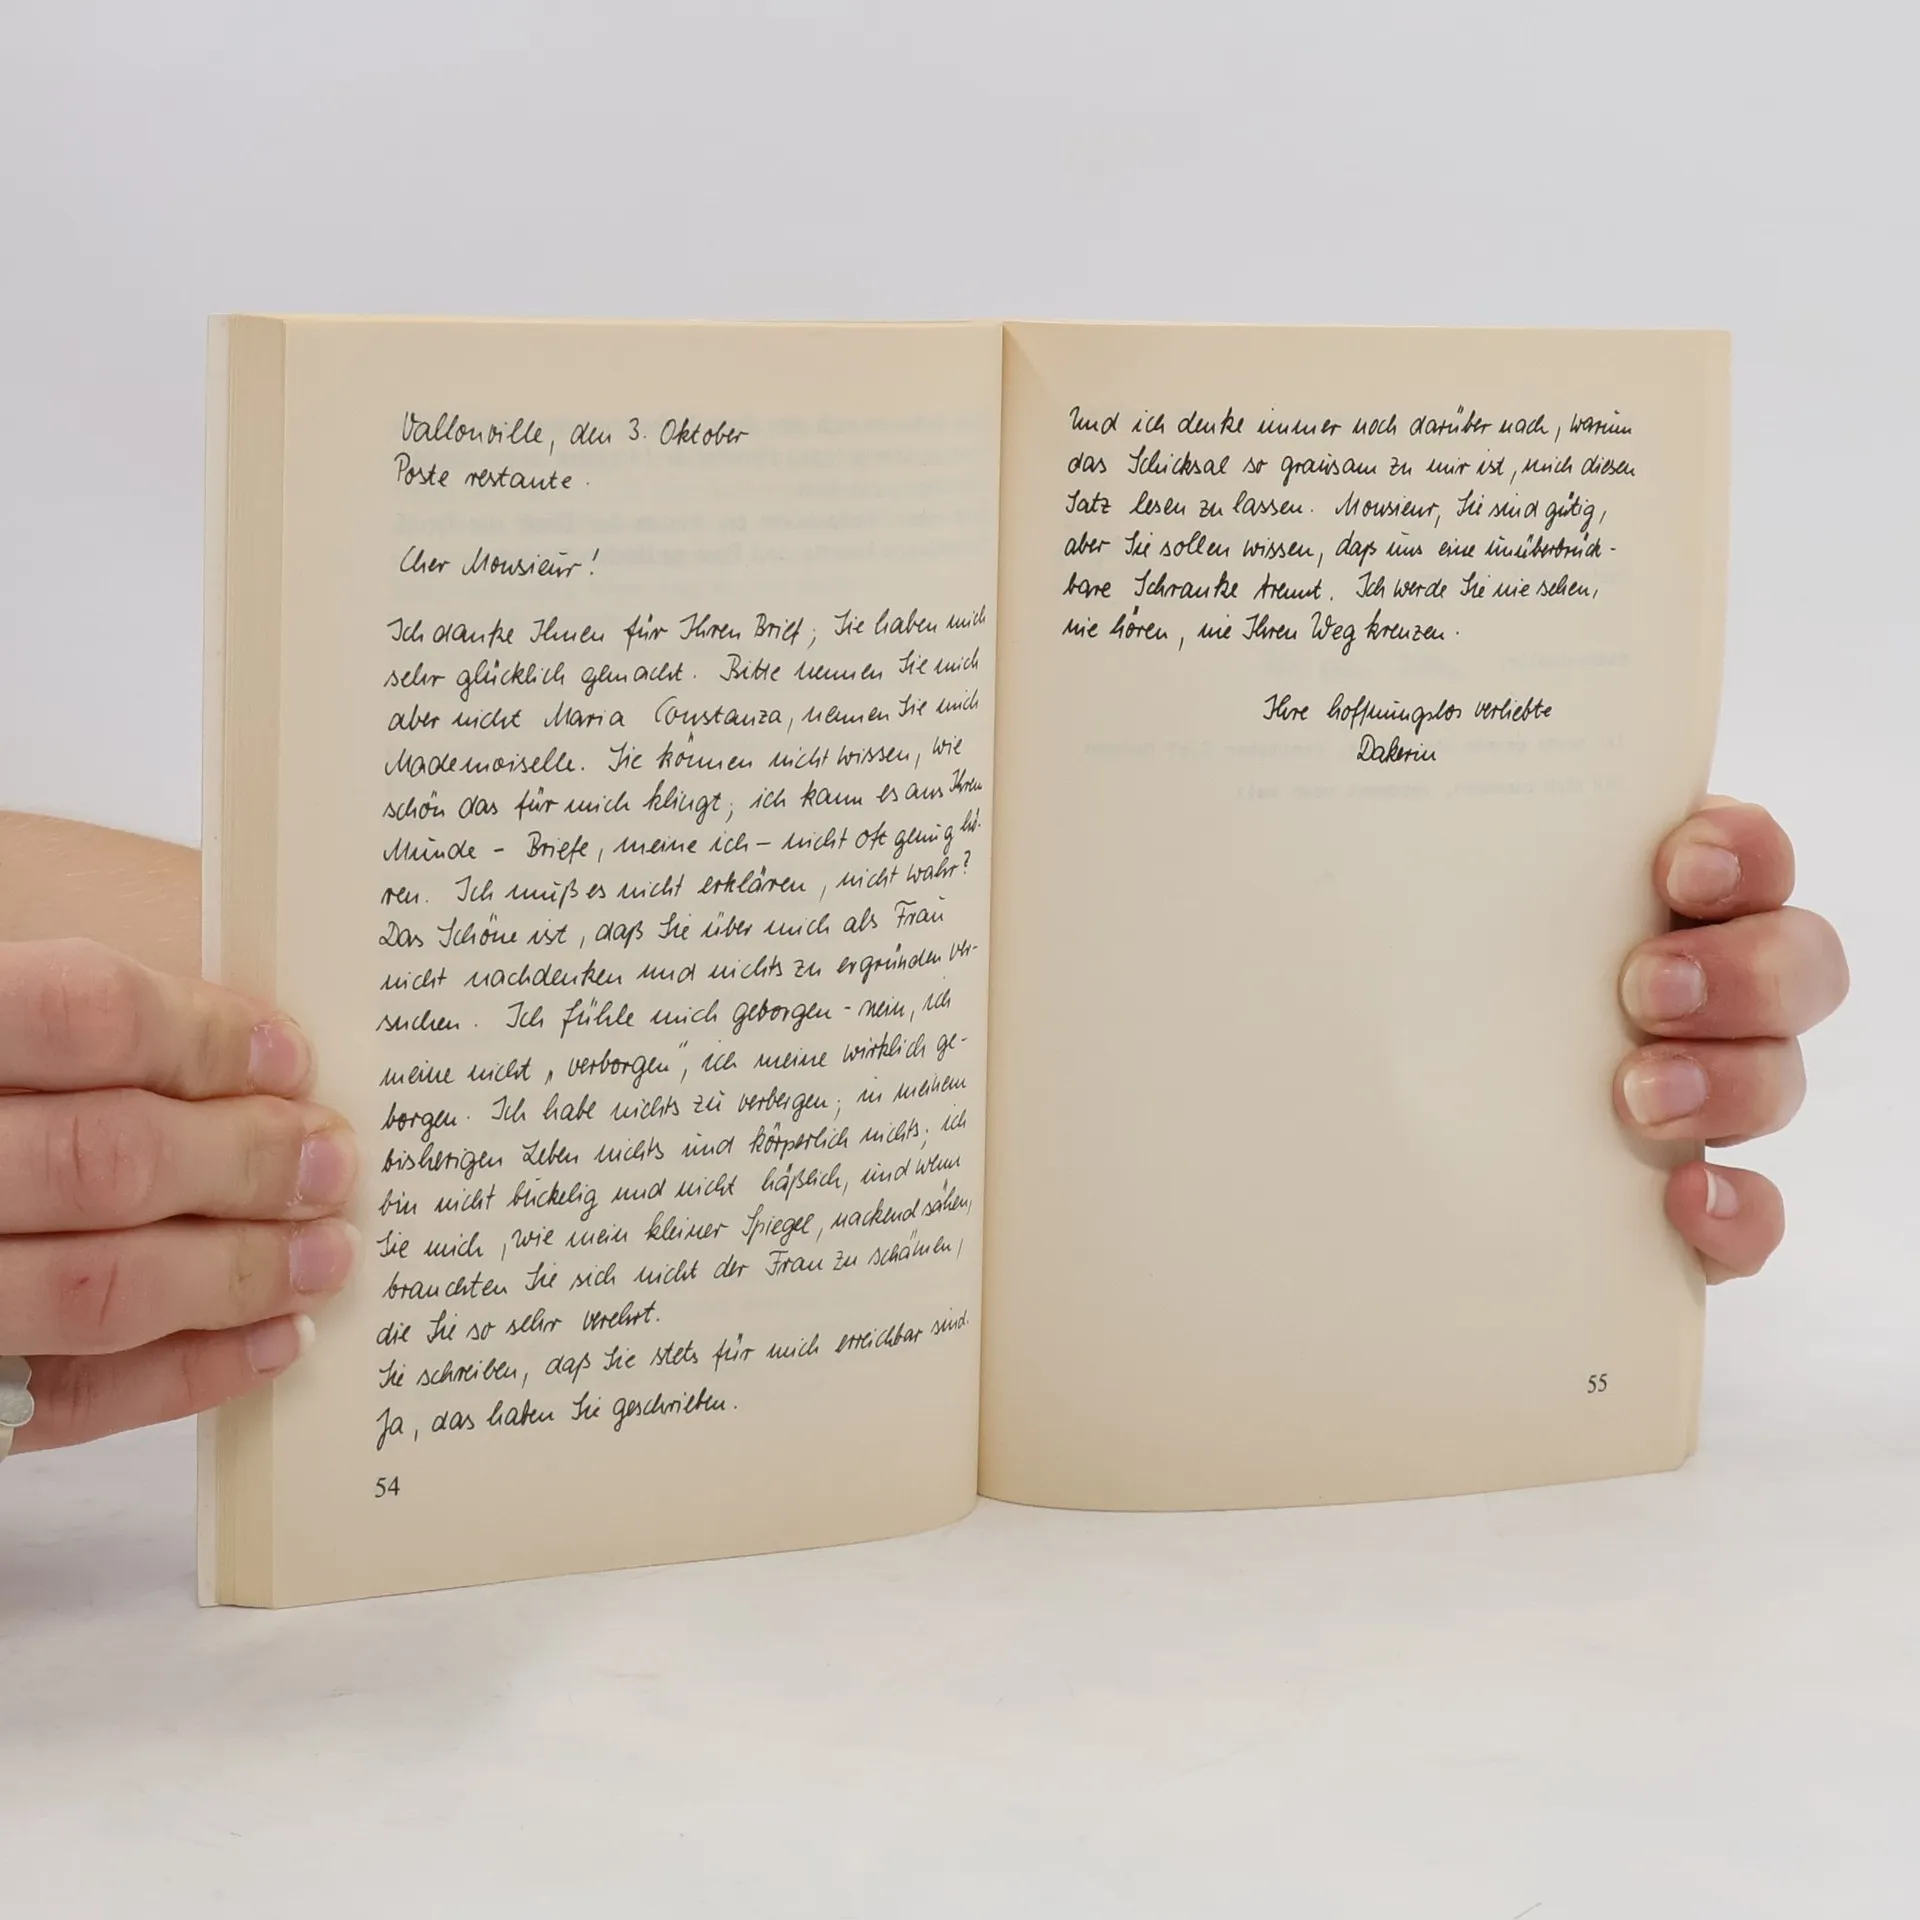 Vallonville, den 3. Oktober
Poste restante.
Cher Monsieur!
Ich danke Ihnen für Ihren Brief; Sie haben mich
sehr glücklich gemacht. Bitte nennen Sie mich
aber nicht Maria Constanza, nennen Sie mich
Mademoiselle. Sie können nicht wissen, wie
schön das für mich klingt; ich kann es aus Ihrem
Munde – Briefe, meine ich – nicht oft genug hö-
ren. Ich muß es nicht erklären, nicht wahr?
Das Schöne ist, daß Sie über mich als Frau
nicht nachdenken und nichts zu ergründen ver-
suchen. Ich fühle mich geborgen - nein, ich
meine nicht „verborgen", ich meine wirklich ge-
borgen. Ich habe nichts zu verbergen; in meinem
bisherigen Leben nichts und körperlich nichts; ich
bin nicht buckelig und nicht häßlich, und wenn
Sie mich, wie mein kleiner Spiegel, nackend sähen,
brauchten Sie sich nicht der Frau zu schämen,
die Sie so sehr verehrt.
Sie schreiben, daß Sie stets für mich erreichbar sind.
Ja, das haben Sie geschrieben.
54
Und ich denke immer noch darüber nach, warum
das Schicksal so grausam zu mir ist, mich diesen
Satz lesen zu lassen. Monsieur, Sie sind gütig,
aber Sie sollen wissen, daß uns eine unüberbrück-
bare Schranke trennt. Ich werde Sie nie sehen,
nie hören, nie Ihren Weg kreuzen.
Ihre hoffnungslos verliebte
Dakerin
55